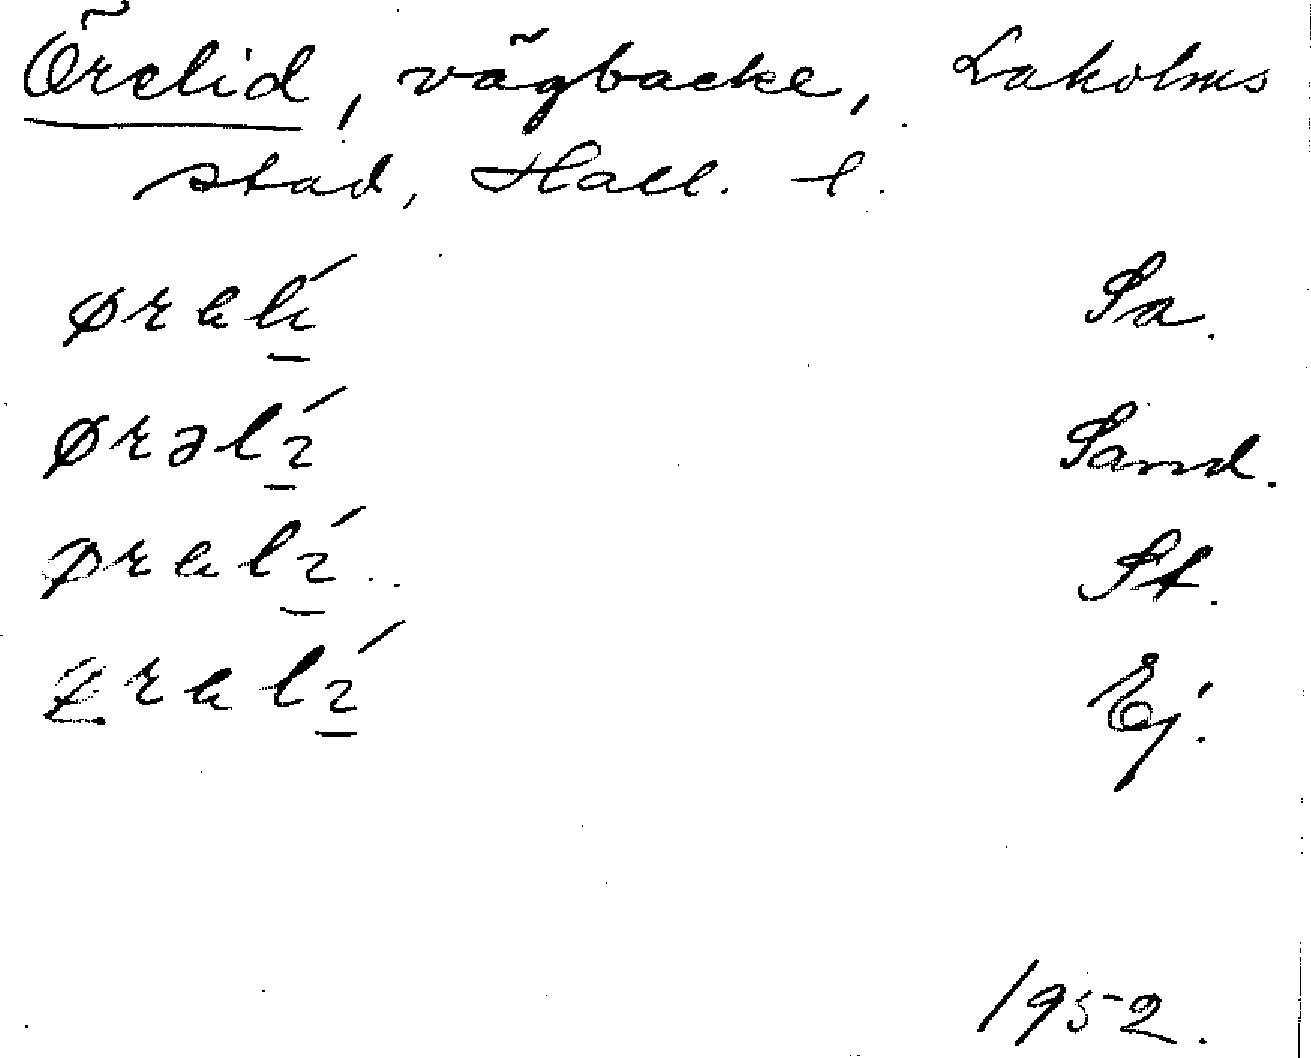 Örelid, vägbacke, Laholms
stad, Hall. l.
ørəlí Sa.
ørəlí Sand.
ørəlí St.
rəlí Ej.
1952.